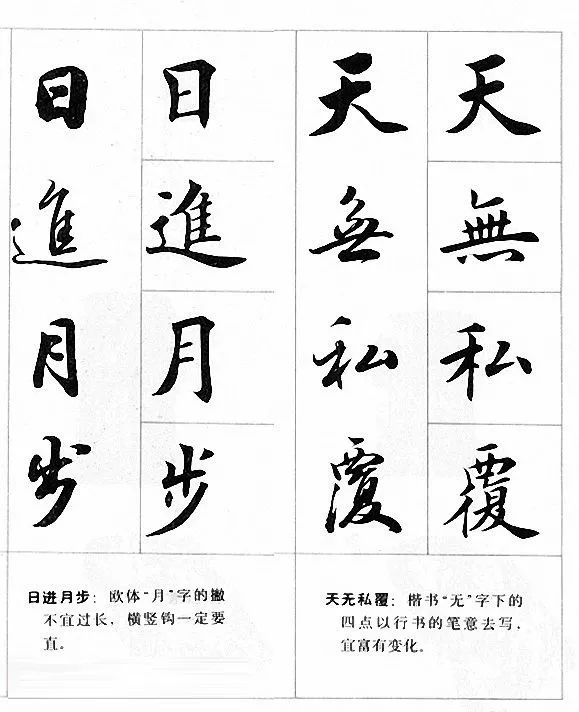 日進月步
日進月步
天無私覆
天無私覆
日进月步：欧体“月”字的撇
不宜过长，横竖钩一定要
直。
天无私覆：楷书“无”字下的
四点以行书的笔意去写，
宜富有变化。